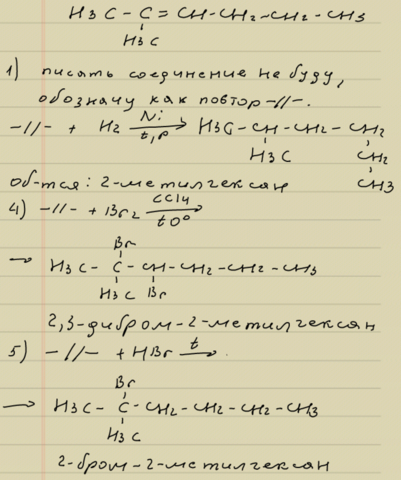 H3C – C = CH – CH2 – CH2 – CH3
H3C
1) писать соединение не буду,
обозначу как повтор –//–.
–//– + H2 Ni t,p → H3C – CH – CH2 – CH2
H3C CH2
об-тся: 2-метилгексан CH3
4) –//– + Br2 CCl4 t0° →
Br
→ H3C – C – CH – CH2 – CH2 – CH3
H3C Br
2,3-дибром-2-метилгексан
5) –//– + HBr t →.
Br
→ H3C – C – CH2 – CH2 – CH2 – CH3
H3C
2-бром-2-метилгексан